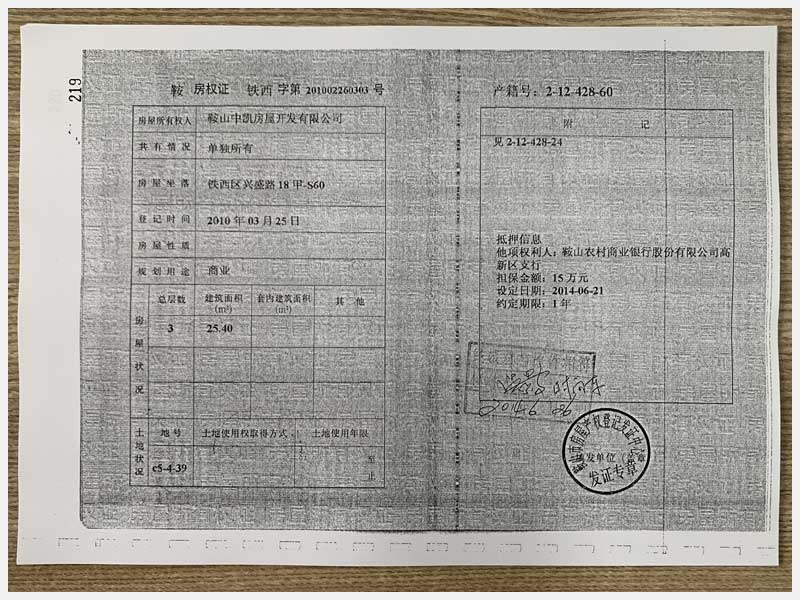 219
鞍 房权证 铁西 字第 201002260303 号
房屋所有权人 鞍山中凯房屋开发有限公司
共有情况 单独所有
房屋坐落 铁西区兴盛路 18 甲-S60
登记时间 2010 年 03 月 25 日
房屋性质
规划用途 商业
房屋状况
总层数 建筑面积(m²) 套内建筑面积(m²) 其他
3 25.40
土地状况
地号 土地使用权取得方式 土地使用年限
c5-4-39 至 止
产籍号：2-12-428-60
附 记
见 2-12-428-24
抵押信息
他项权利人：鞍山农村商业银行股份有限公司高
新区支行
担保金额：15 万元
设定日期：2014-06-21
约定期限：1 年
鞍山市房屋产权登记发证中
填发单位（盖章）
发证专章